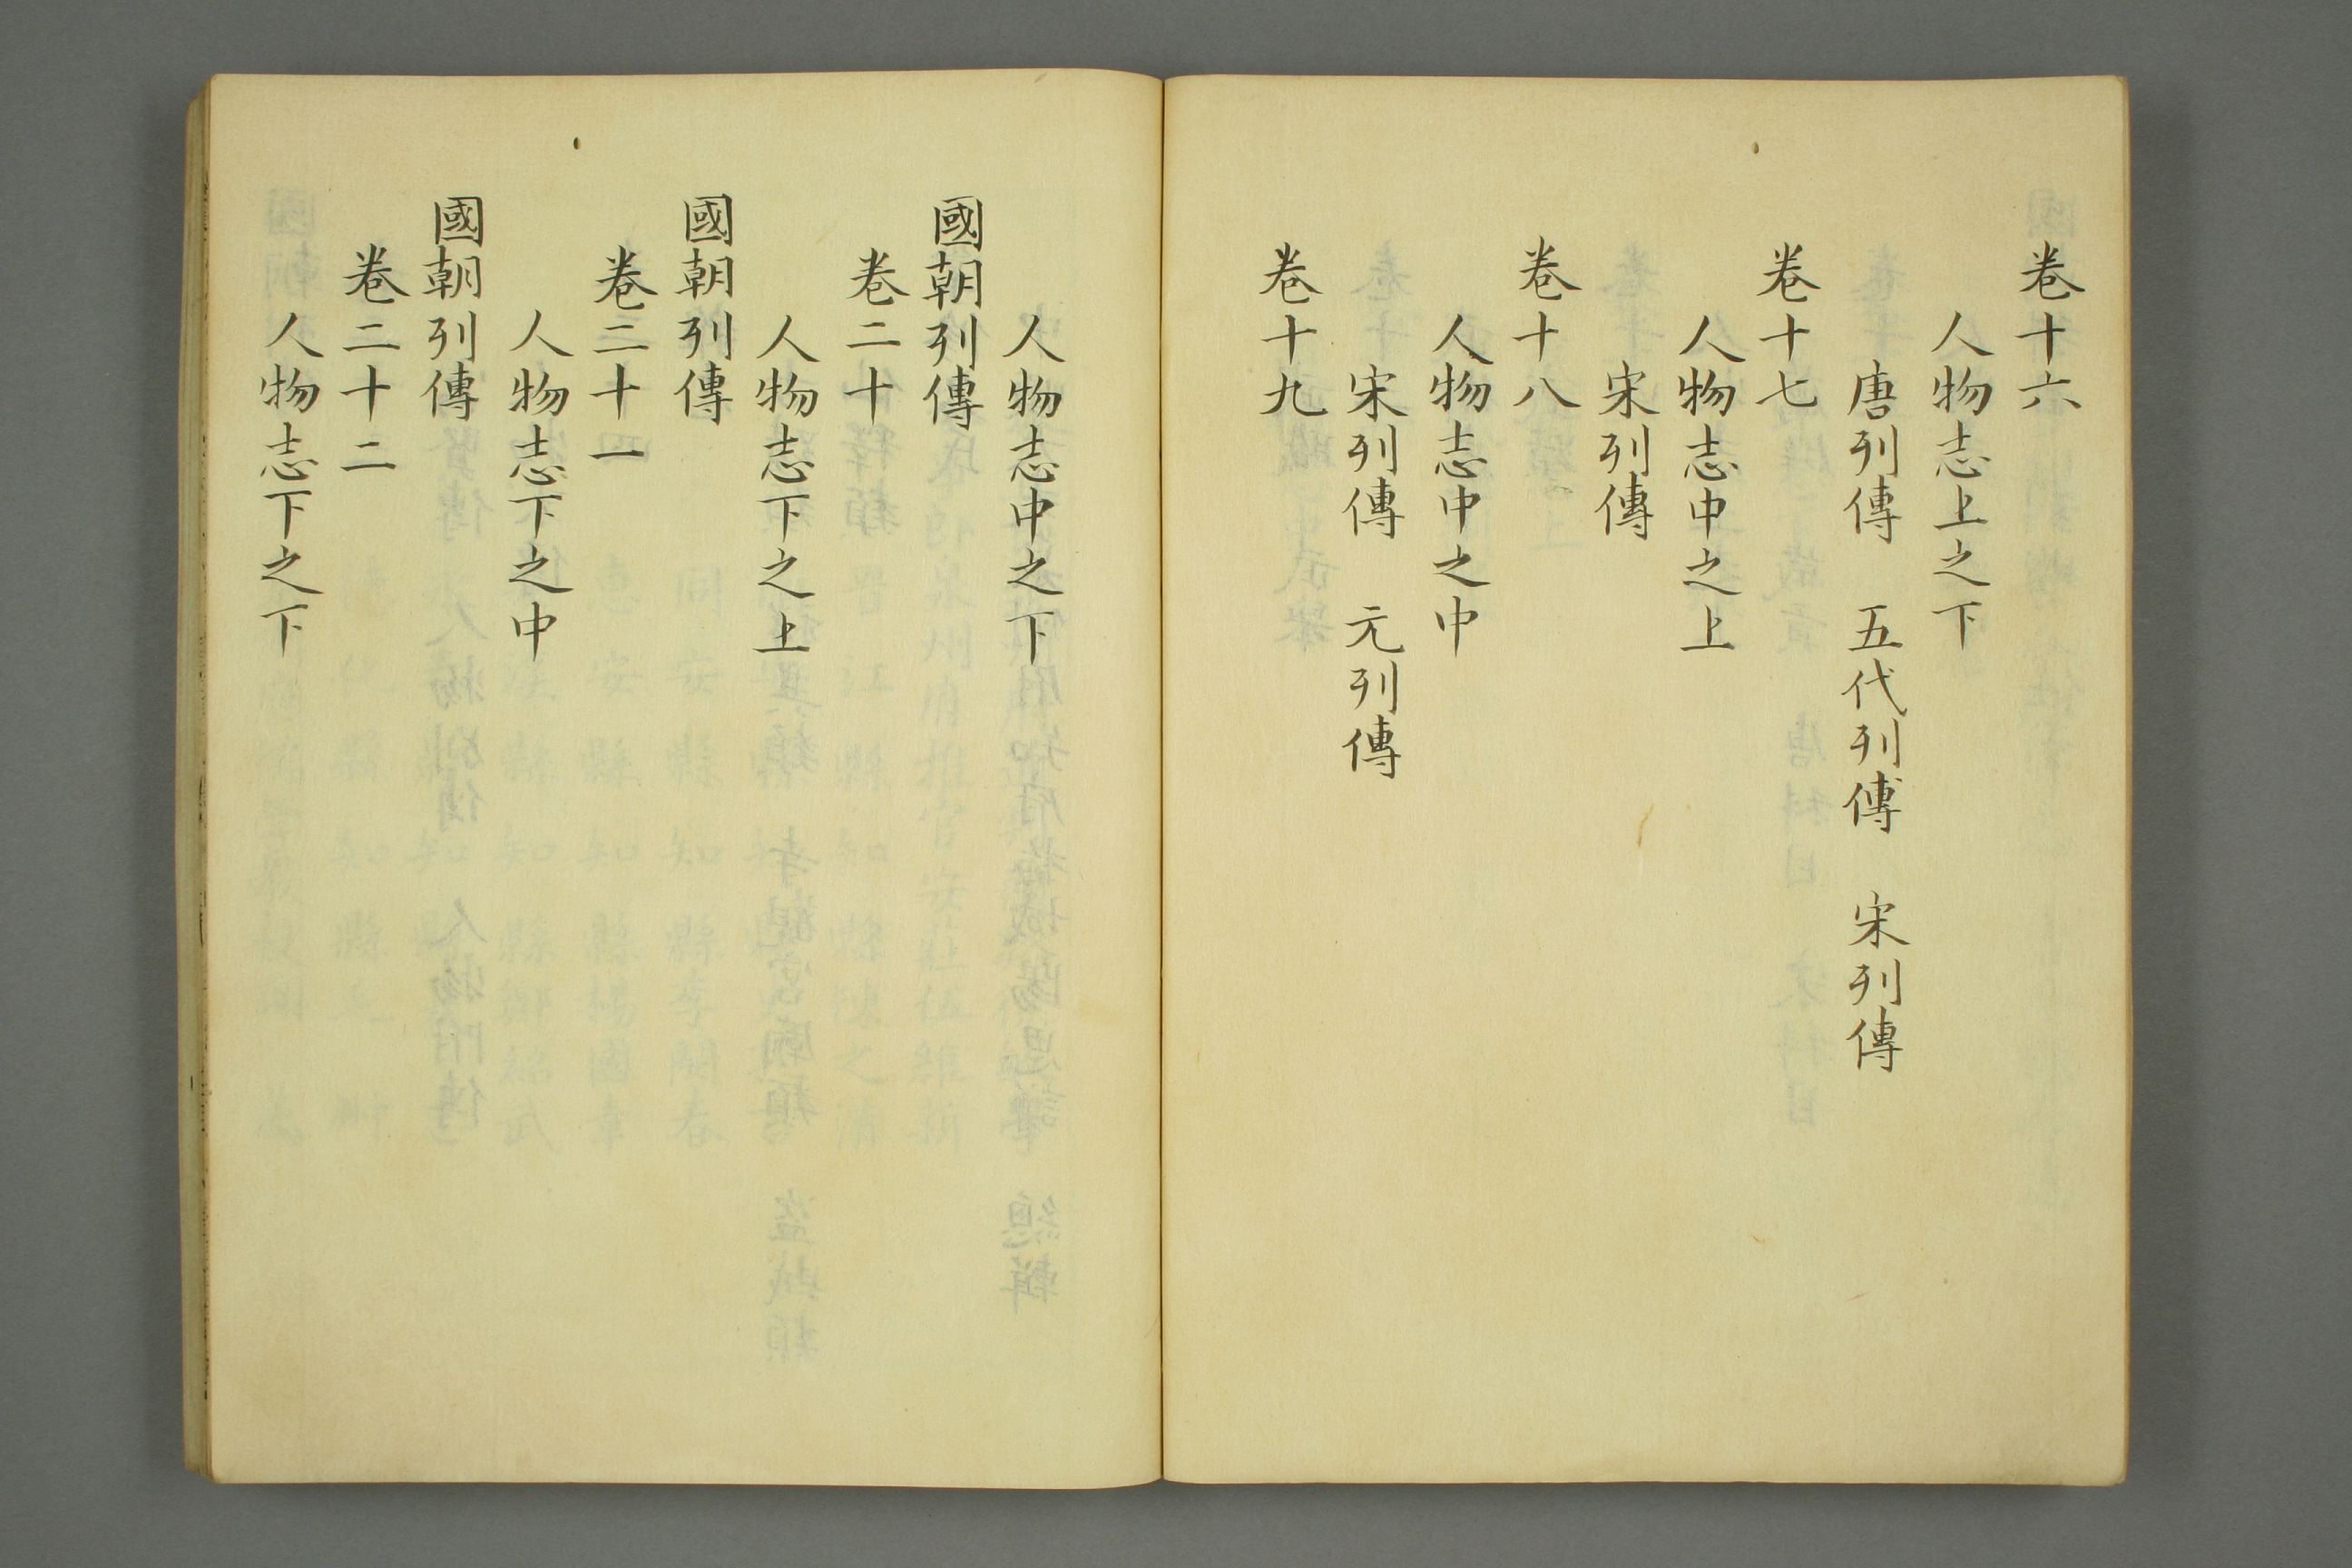 卷十六
人物志上之下
唐列傳　五代列傳　宋列傳
卷十七
人物志中之上
宋列傳
卷十八
人物志中之中
宋列傳　元列傳
卷十九
人物志中之下
國朝列傳
卷二十
人物志下之上
國朝列傳
卷二十一
人物志下之中
國朝列傳
卷二十二
人物志下之下